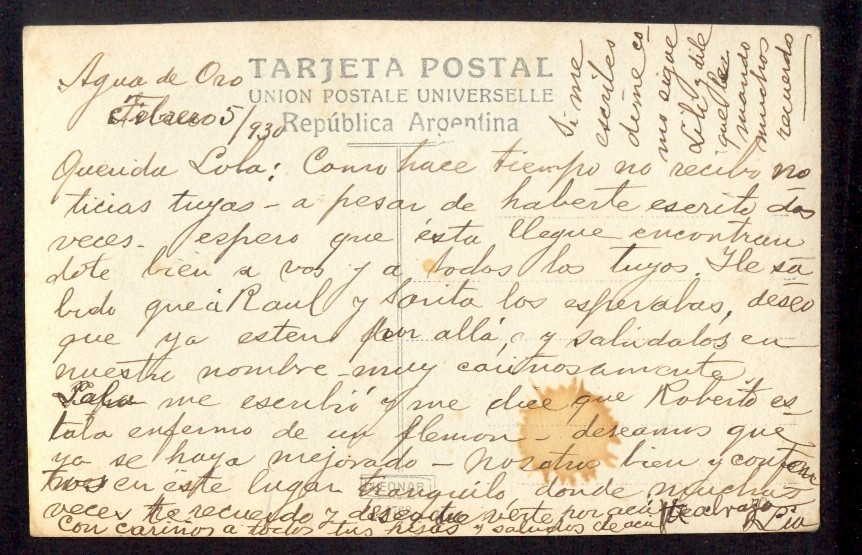 TARJETA POSTAL
UNION POSTALE UNIVERSELLE
República Argentina
Agua de Oro
Febrero 5/930
Querida Lola: Como hace tiempo no recibo no
ticias tuyas - a pesar de haberte escrito dos
veces - espero que ésta llegue encontran
dote bien a vos y a todos los tuyos. He sa
bido que á Raul y Sarita los esperabas, deseo
que ya esten por allá, y saludalos en
nuestro nombre - muy cariñosamente
me escribió y me dice que Roberto es
taba enfermo de un flemon - deseamos que
ya se haya mejorado - Nosotros bien y conten
tos en este lugar tranquilo donde muchas
veces te recuerdo y verte por acá, te abraza
Con cariños a todos tus y saludos de acá Lia
Si me
escribes
dime co
mo sigue
Lili y dile
que les
mando
muchos
recuerdos